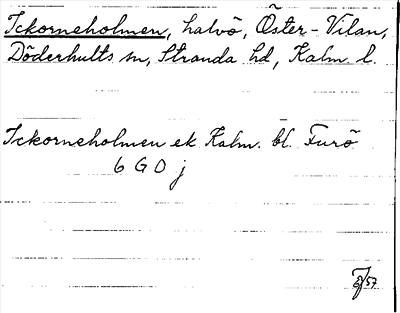 Ickorneholmen, halvö, Öster-Vilan,
Döderhults sn, Stranda hd, Kalm l.
Ickorneholmen ek Kalm. bl. Furö
6 G 0 j
57